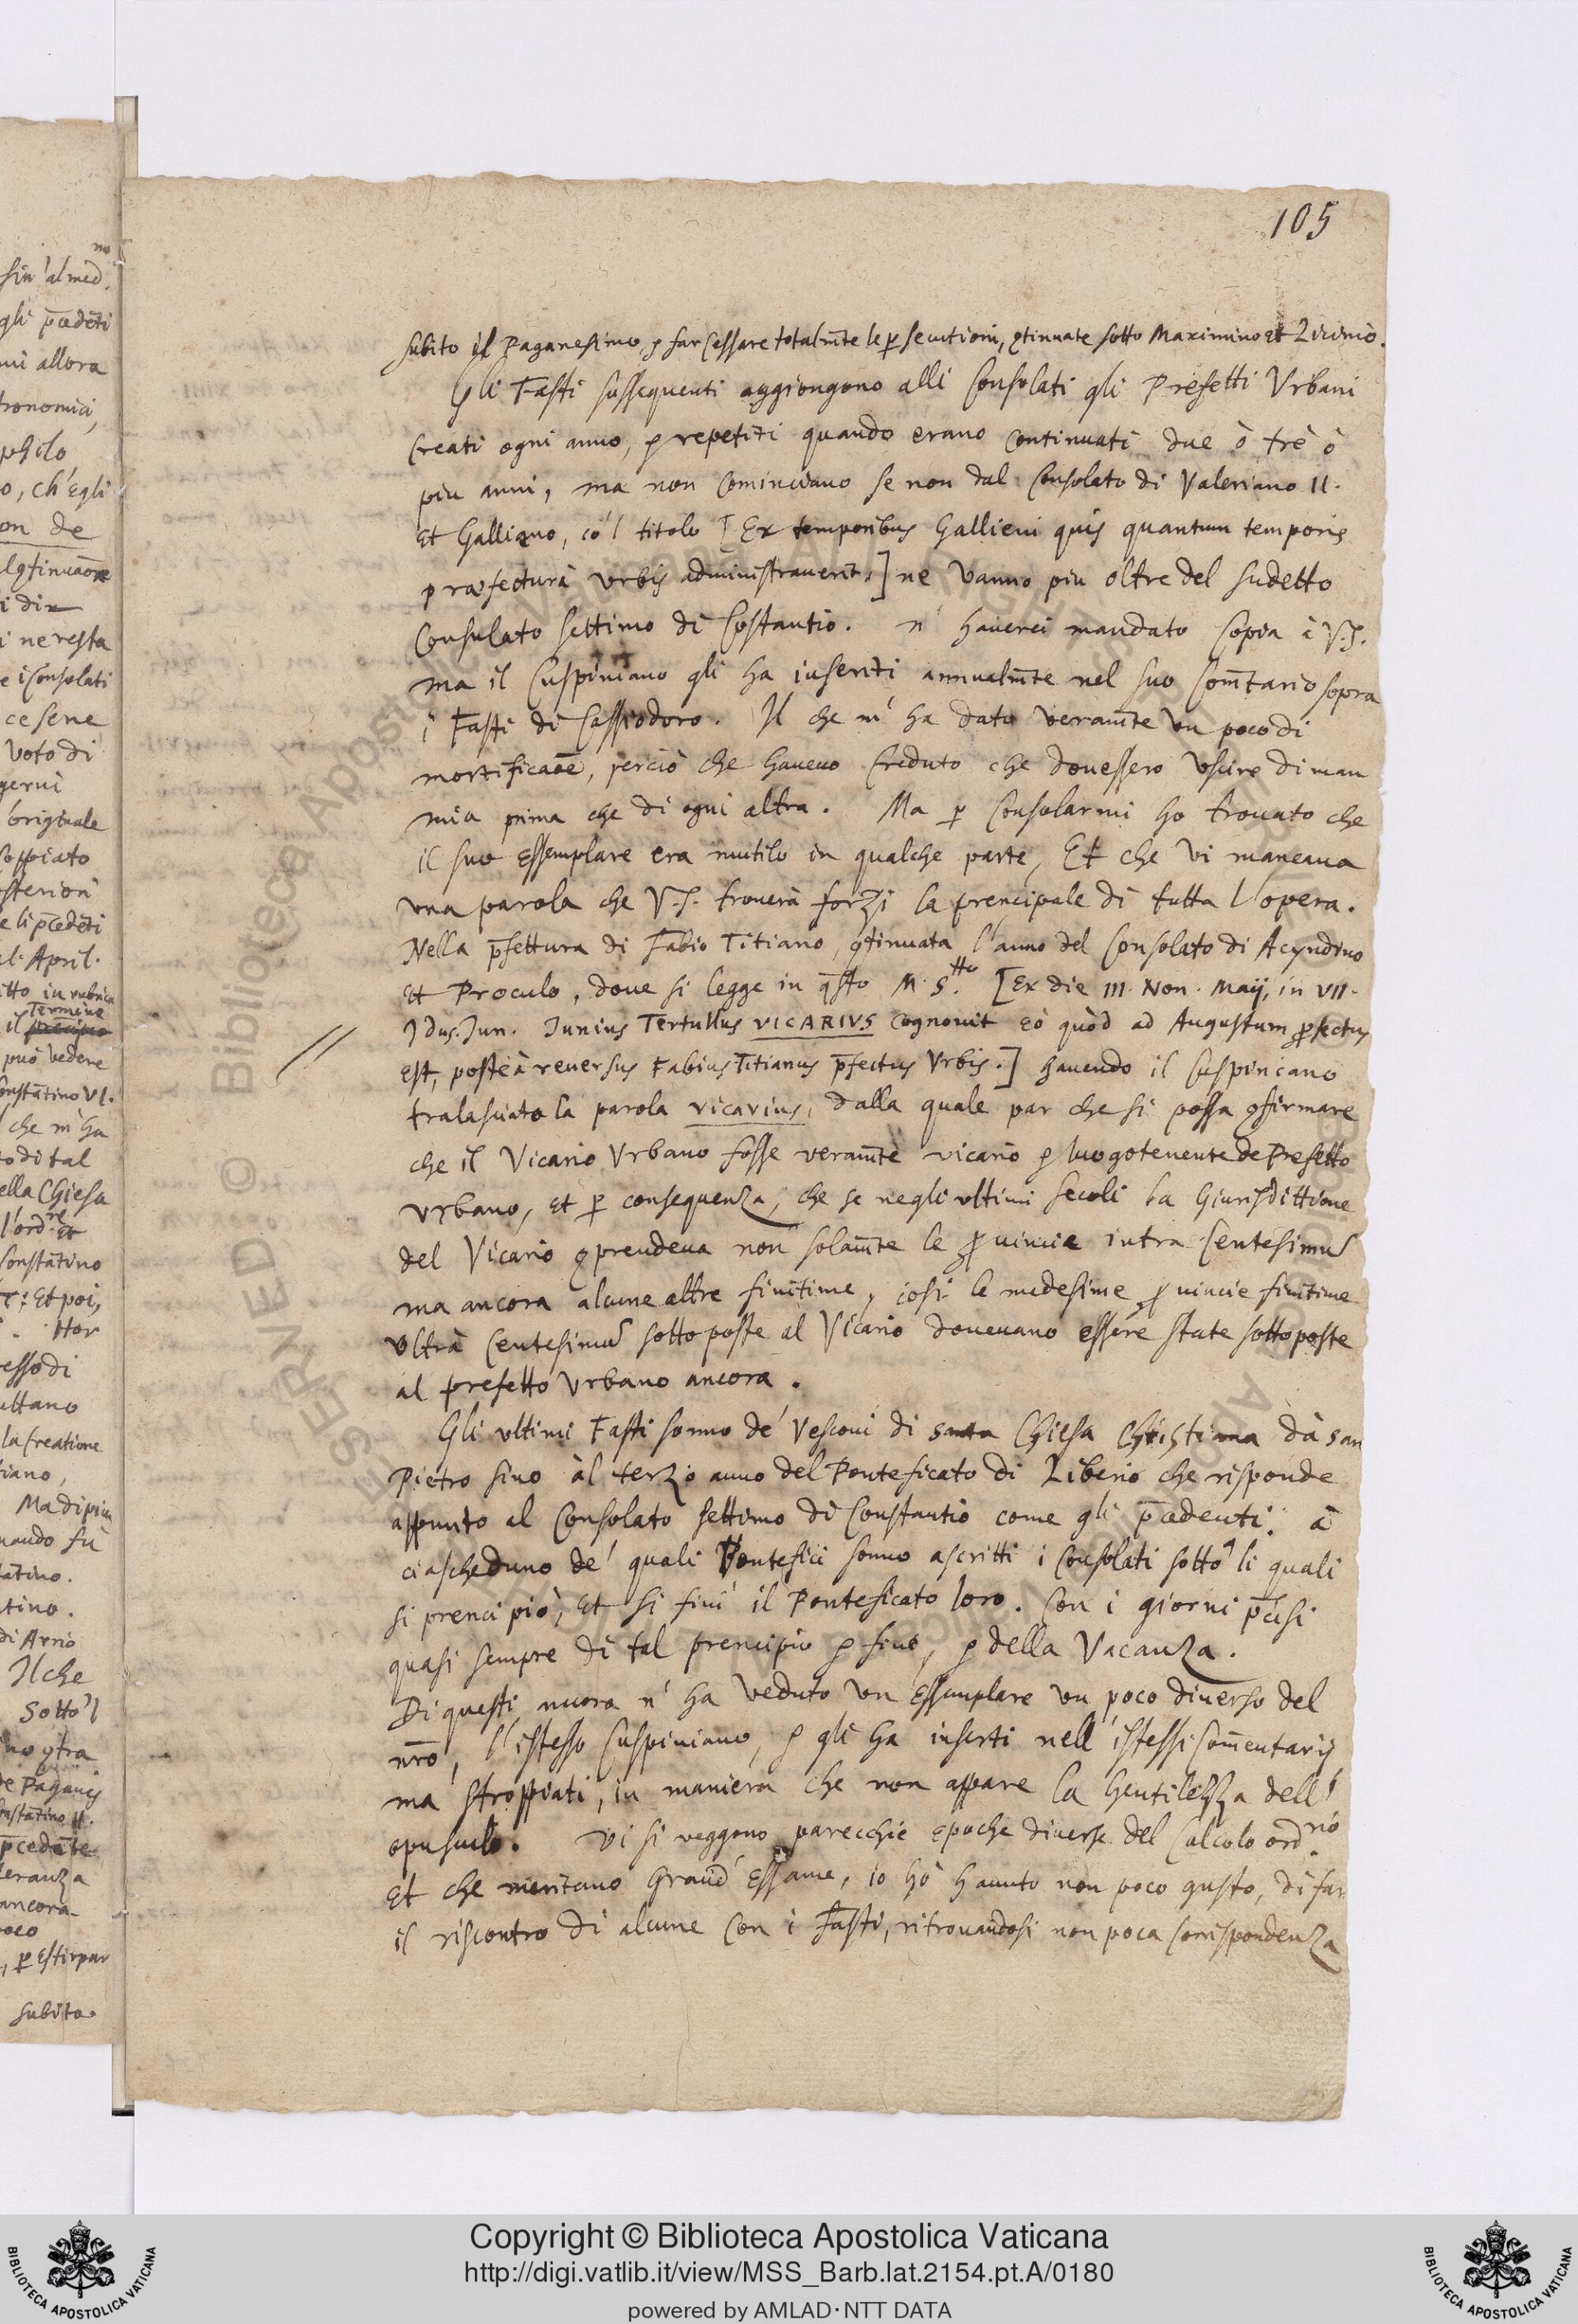 105
subito il Paganesimo, ꝯ far cessare totalm̃te le ꝑsecutioni, ꝯtinuate sotto Maximino et Licinio.
Gli Fasti sussequenti aggiongono alli Consolati gli Prefetti Vrbani
creati ogni anno, ꝯ repetiti quando erano continuati due ò trè ò
piu anni, ma non cominciano se non dal Consolato di Valeriano II.
et Gallieno, co'l titolo [Ex temporibus Gallieni quis quantum temporis
præfecturā vrbis administrauerit.] ne vanno piu oltre del sudetto
Consulato settimo di Costantio. n' hauerei mandato Copia à V.S.
ma il Cuspiniano gli ha inseriti annualm̃te nel suo Com̃tario sopra
i Fasti di Cassiodoro. Il che m' ha dato veram̃te un poco di
mortificaõe, perciò che haueuo creduto che douessero vscire di man
mia prima che di ogni altra. Ma ꝑ consolarmi ho trouato che
il suo essemplare era mutilo in qualche parte, Et che vi mancaua
vna parola che V.S. trouerà forzi la prencipale di tutta l'opera.
Nella p̃fettura di Fabio Titiano, ꝯtinuata l'anno del Consolato di Acyndino
et Proculo, doue si legge in q̃sto M.S.tto [Ex die III. Non. Maij, in VII.
Idus. Jun. Iunius Tertullus VICARIVS cognouit eò quòd ad Augustum ꝓfectus
est, posteà reuersus Fabius Titianus p̃fectus Vrbis.] hauendo il Cuspiniano
tralasciato la parola vicarius, dalla quale par che si possa ꝯfirmare
che il Vicario Vrbano fosse veram̃te vicario ꝯ luogotenente de Prefetto
vrbano, et ꝑ consequenza, che se negli ultimi secoli la Giurisdittione
del Vicario ꝯprendeua non solam̃te le ꝓuincie intra Centesimũ
ma ancora alcune altre finitime, cosi le medesime ꝓuincie finitime
vltrà Centesimũ sottoposte al Vicario doueuano essere state sottoposte
al prefetto vrbano ancora.
Gli ultimi Fasti sonno de' Vescoui di santa Chiesa Christiana dà san
Pietro sino àl terzo anno del Ponteficato di Liberio che risponde
appunto al Consolato settimo di Constantio come gli p̃cedenti. à
ciascheduno de' quali Pontefici sonno ascritti i Consolati sotto li quali
si prencipiò, et si finì il Ponteficato loro. Con i giorni p̃cisi
quasi sempre di tal prencipio ꝯ fine, ꝯ della Vacanza.
Di questi ancora n' ha veduto un essemplare un poco diuerso del
nr̃o, l'istesso Cuspiniano, ꝯ gli ha inserti nell' istessi Com̃entarij
ma stroppiati, in maniera che non appare la Gentilezza dell'
opusculo. Vi si veggono parecchie epoche diuerse del Calcolo ord.rio
Et che meritano Grand' essame, io hò hauuto non poco gusto, di far
il riscontro di alcune con i Fasti, ritrouandosi non poca corrispondenza
Copyright © Biblioteca Apostolica Vaticana
http://digi.vatlib.it/view/MSS_Barb.lat.2154.pt.A/0180
powered by AMLAD·NTT DATA